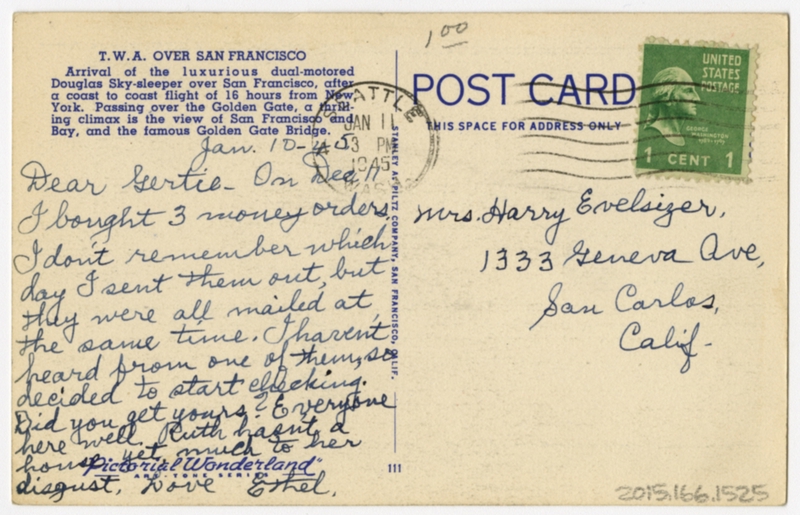 1.00
T.W.A. OVER SAN FRANCISCO
Arrival of the luxurious dual-motored
Douglas Sky-sleeper over San Francisco, after
a coast to coast flight of 16 hours from New
York. Passing over the Golden Gate, a thrill-
ing climax is the view of San Francisco and
Bay, and the famous Golden Gate Bridge.
Jan. 10-45
Dear Gertie- On Dec. 11
I bought 3 money orders.
I don't remember which
day I sent them out, but
they were all mailed at
the same time. I haven't
heard from one of them, so
decided to start checking.
Did you get yours? Everyone
here well. Ruth hasn't a
house yet much to her
disgust, Love Ethel.
"Pictorial Wonderland"
ART-TONE SERIES
STANLEY A. PILTZ COMPANY, SAN FRANCISCO, CALIF.
111
SEATTLE
JAN 11
3 PM
1945
WASH.
POST CARD
THIS SPACE FOR ADDRESS ONLY
UNITED
STATES
POSTAGE
GEORGE
WASHINGTON
1 CENT 1
Mrs. Harry Evelsizer,
1333 Geneva Ave,
San Carlos,
Calif.
2015.166.1525